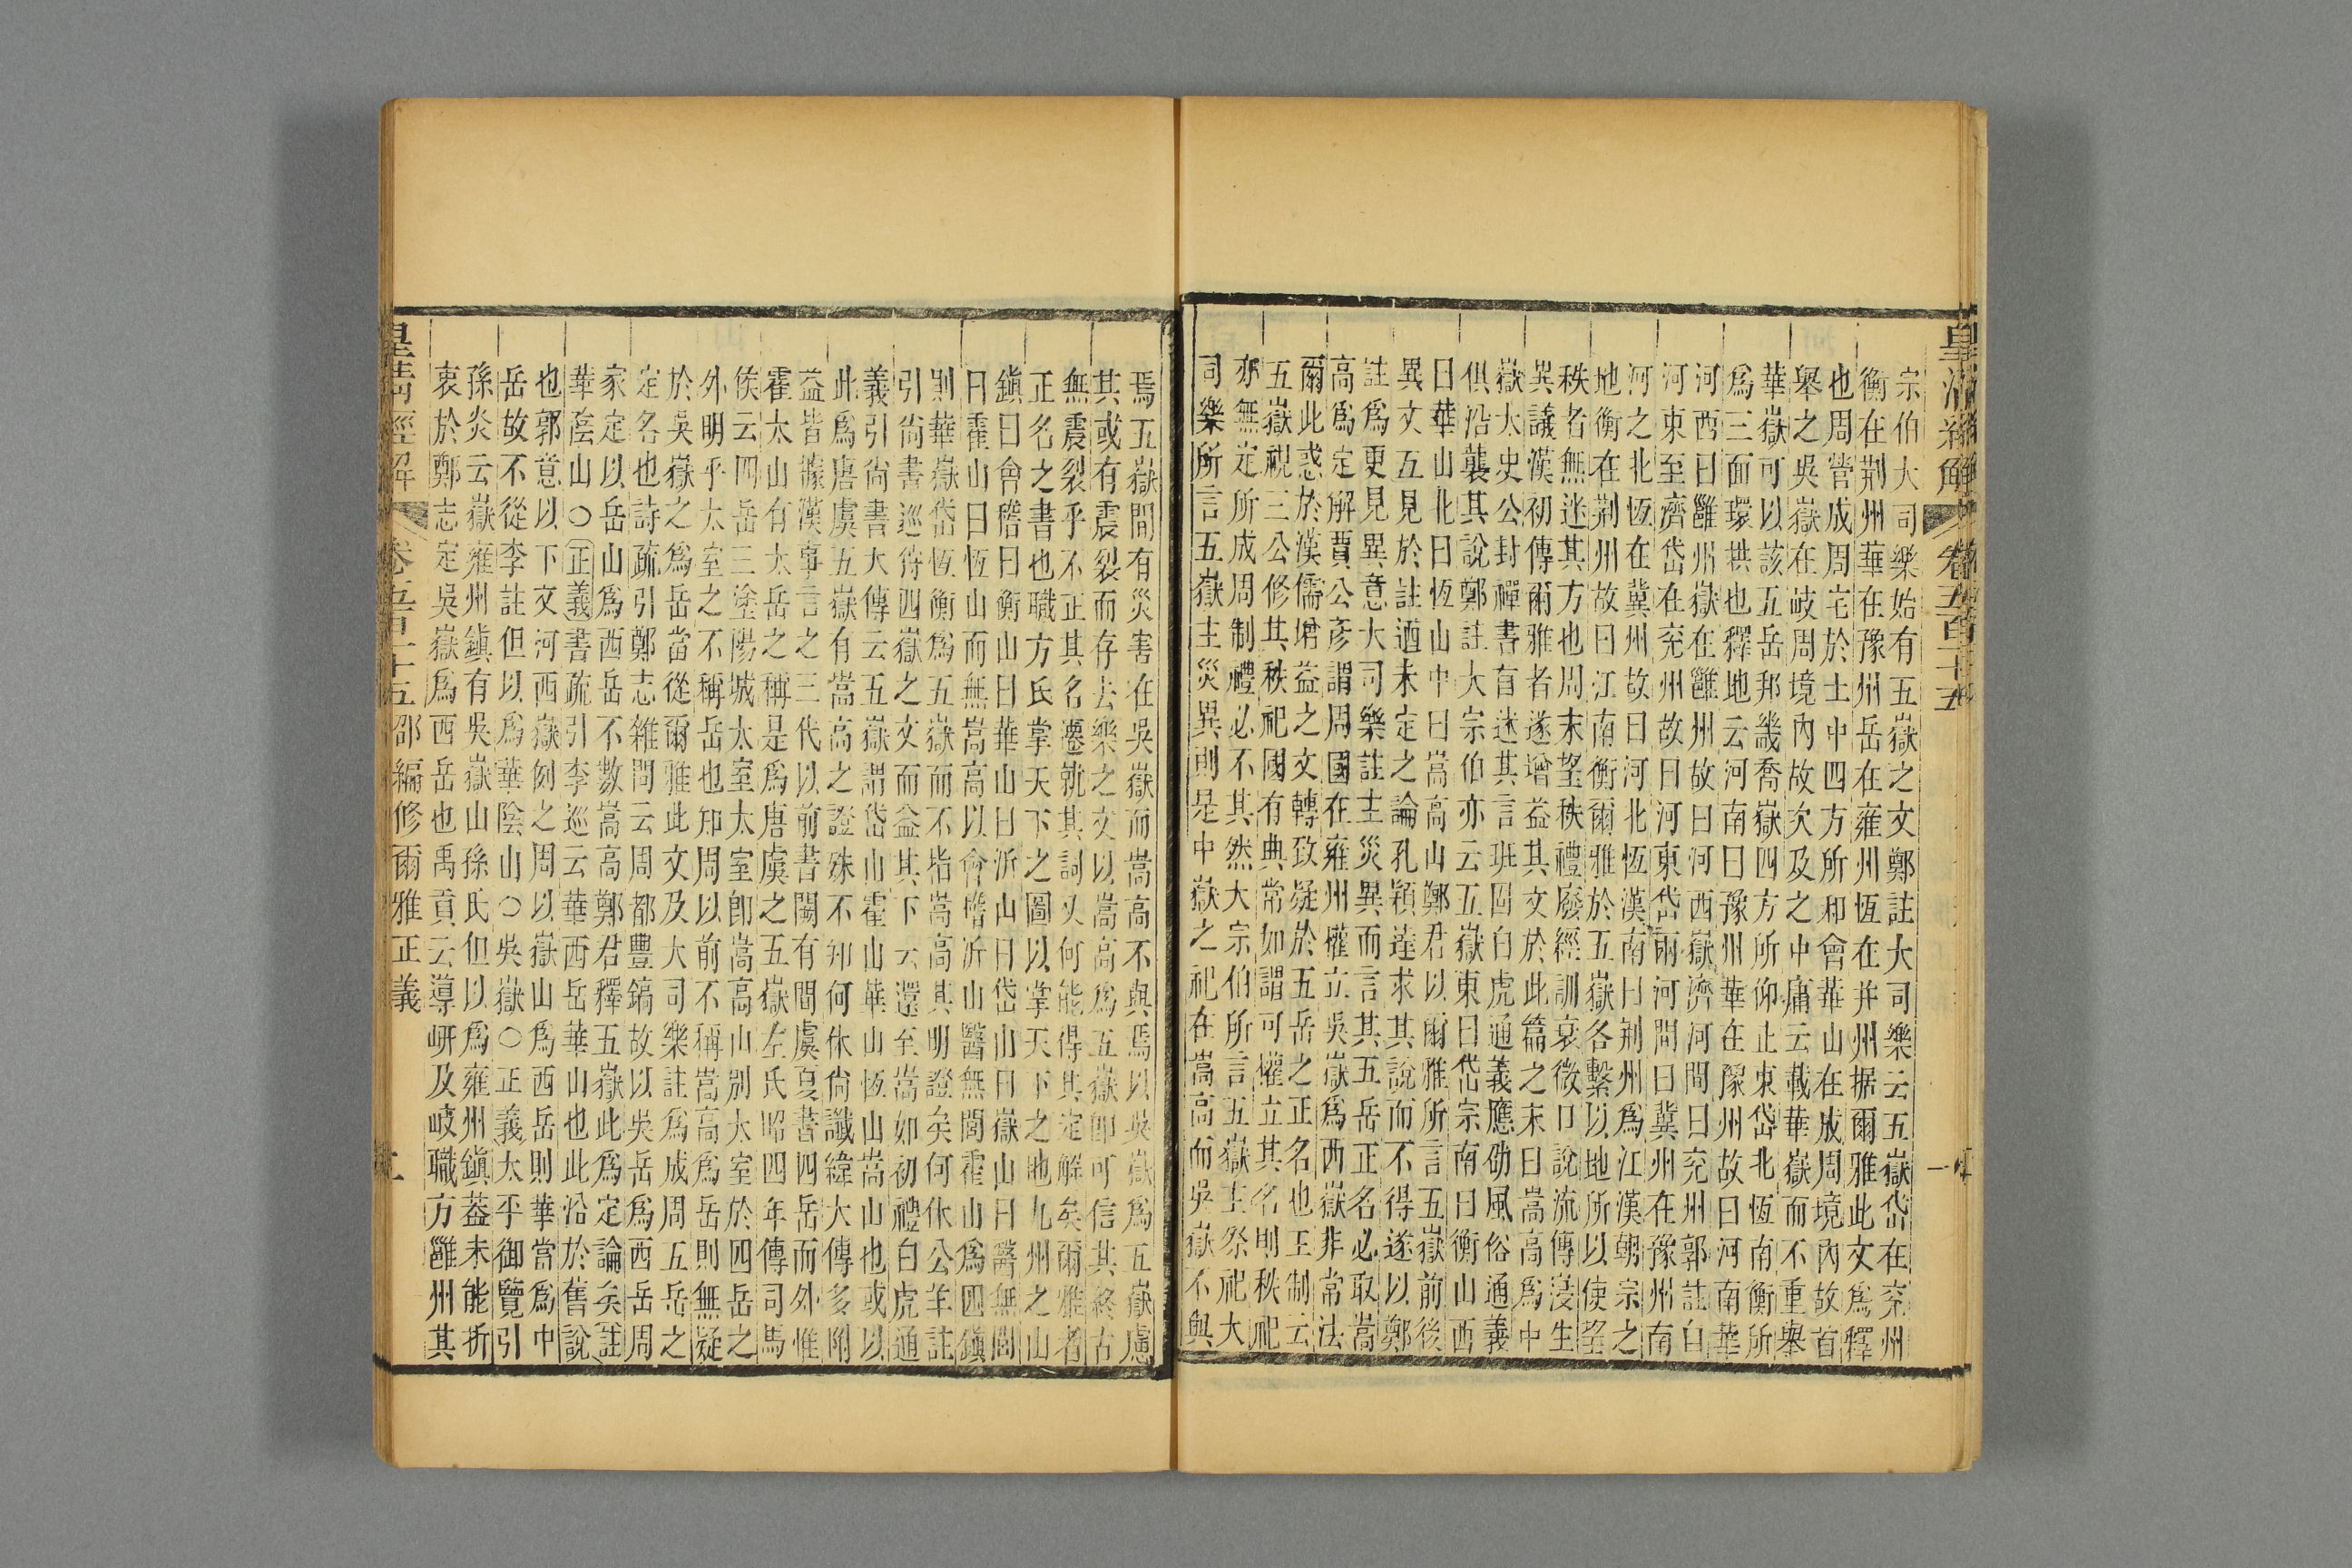 皇清經解 卷五百十五 一
宗伯大司樂始有五嶽之文鄭註大司樂云五嶽岱在兗州
衡在荆州華在豫州岳在雍州恆在并州据爾雅此文為釋
也周營成周宅於土中四方所和會華山在成周境內故首
舉之吳嶽在岐周境內故次及之中庸云載華嶽而不重舉
華嶽可以該五岳邦畿喬嶽四方所仰止東岱北恆南衡所
為三面環拱也釋地云河南曰豫州華在豫州故曰河南華
河西曰雝州嶽在雝州故曰河西嶽濟河間曰兗州郭註自
河東至濟岱在兗州故曰河東岱兩河間曰冀州在豫州南
河之北恆在冀州故曰河北恆漢南曰荆州為江漢朝宗之
地衡在荆州故曰江南衡爾雅於五嶽各繫以地所以使望
秩者無迷其方也周末望秩禮廢經訓衰微口說流傳寖生
異議漢初傳爾雅者遂增益其文於此篇之末曰嵩高為中
嶽太史公封禪書首述其言班固白虎通義應劭風俗通義
俱沿襲其說鄭註大宗伯亦云五嶽東曰岱宗南曰衡山西
曰華山北曰恆山中曰嵩高山鄭君以爾雅所言五嶽前後
異文五見於註迺未定之論孔穎達求其說而不得遂以鄭
註為更見異意大司樂註主災異而言其五岳正名必取嵩
高為定解賈公彥謂周國在雍州權立吳嶽為西嶽非常法
爾此惑於漢儒增益之文轉致疑於五岳之正名也王制云
五嶽視三公修其秩祀國有典常如謂可權立其名則秩祀
亦無定所成周制禮必不其然大宗伯所言五嶽主祭祀大
司樂所言五嶽主災異則是中嶽之祀在嵩高而吳嶽不與
焉五嶽間有災害在吳嶽而嵩高不與焉以吳嶽為五嶽慮
其或有震裂而存去樂之文以嵩高為五嶽卽可信其終古
無震裂乎不正其名遷就其詞又何能得其定解矣爾雅者
正名之書也職方氏掌天下之圖以掌天下之地九州之山
鎮曰會稽曰衡山曰華山曰沂山曰岱山曰嶽山曰醫無閭
曰霍山曰恆山而無嵩高以會稽沂山醫無閭霍山為四鎮
則華嶽岱恆衡為五嶽而不指嵩高其明證矣何休公羊註
引尙書巡狩四嶽之文而益其下云還至嵩如初禮白虎通
義引尙書大傳云五嶽謂岱山霍山華山恆山嵩山也或以
此為唐虞五嶽有嵩高之證殊不知何休尙讖緯大傳多附
益皆據漢事言之三代以前書闕有間虞夏書四岳而外惟
霍太山有太岳之稱是為唐虞之五嶽左氏昭四年傳司馬
侯云四岳三塗陽城太室太室卽嵩高山別太室於四岳之
外明乎太室之不稱岳也知周以前不稱嵩高為岳則無疑
於吳嶽之為岳當從爾雅此文及大司樂註為成周五岳之
定名也詩疏引鄭志雜問云周都豐鎬故以吳岳為西岳周
家定以岳山為西岳不數嵩高鄭君釋五嶽此為定論矣註
華陰山○正義書疏引李巡云華西岳華山也此沿於舊說
也郭意以下文河西嶽例之周以嶽山為西岳則華當為中
岳故不從李註但以為華陰山○吳嶽○正義太平御覽引
孫炎云嶽雍州鎮有吳嶽山孫氏但以為雍州鎮葢未能折
衷於鄭志定吳嶽為西岳也禹貢云導岍及岐職方雝州其
皇清經解 卷五百十五 邵編修爾雅正義